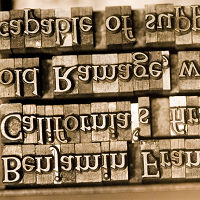 capable of supp
old Ramage w
California's fir
Benjamin Fran